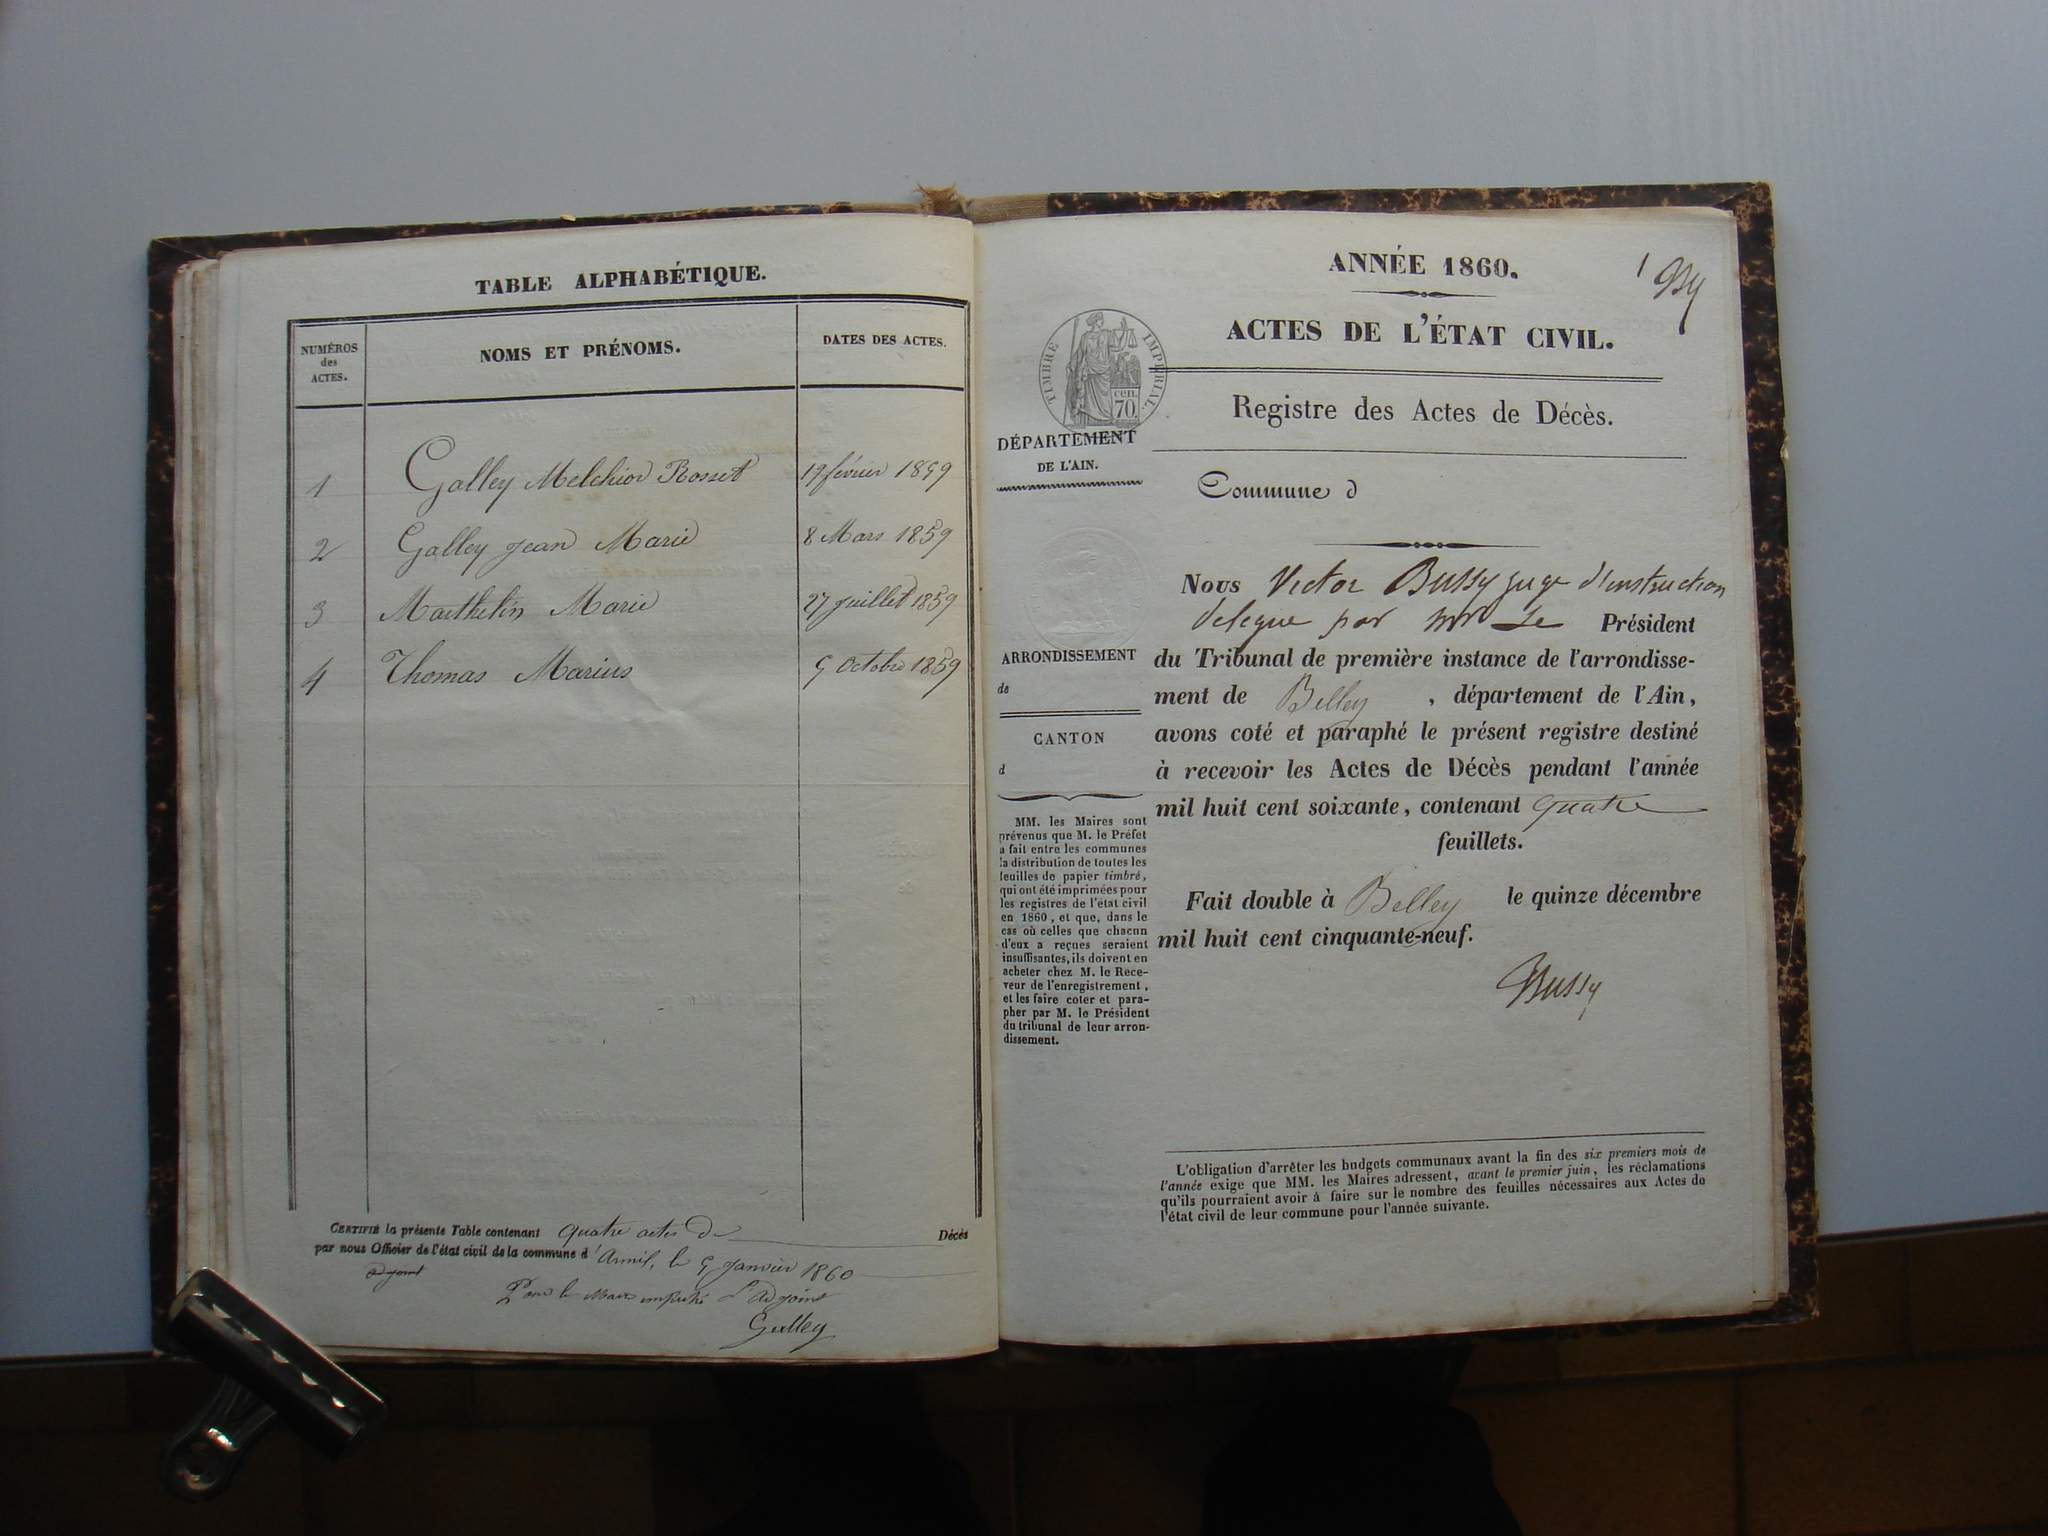 TABLE ALPHABÉTIQUE.
NUMÉROS
des
ACTES.
NOMS ET PRÉNOMS.
DATES DES ACTES.
1 Galley Melchior Rosset 19 février 1859
2 Galley Jean Marie 8 Mars 1859
3 Marthelin Marie 27 Juillet 1859
4 Thomas Marius 5 Octobre 1859
CERTIFIÉ la présente Table contenant quatre actes de Décès
par nous Officier de l'état civil de la commune d' le 5 Janvier 1860
adjoint
Pour le Maire empêché L'adjoint
Galley
ANNÉE 1860.
1
ACTES DE L'ÉTAT CIVIL.
TIMBRE IMPÉRIAL.
cen.
70.
Registre des Actes de Décès.
DÉPARTEMENT
DE L'AIN.
Commune d
ARRONDISSEMENT
de
CANTON
d
MM. les Maires sont
prévenus que M. le Préfet
a fait entre les communes
la distribution de toutes les
feuilles de papier timbré,
qui ont été imprimées pour
les registres de l'état civil
en 1860, et que, dans le
cas où celles que chacun
d'eux a reçues seraient
insuffisantes, ils doivent en
acheter chez M. le Rece-
veur de l'enregistrement,
et les faire coter et para-
pher par M. le Président
du tribunal de leur arron-
dissement.
Nous Victor Bussy juge d'instruction
delegue par mr Le Président
du Tribunal de première instance de l'arrondisse-
ment de Belley, département de l'Ain,
avons coté et paraphé le présent registre destiné
à recevoir les Actes de Décès pendant l'année
mil huit cent soixante, contenant quatre
feuillets.
Fait double à Belley le quinze décembre
mil huit cent cinquante-neuf.
Bussy
L'obligation d'arrêter les budgets communaux avant la fin des six premiers mois de
l'année exige que MM. les Maires adressent, avant le premier juin, les réclamations
qu'ils pourraient avoir à faire sur le nombre des feuilles nécessaires aux Actes de
l'état civil de leur commune pour l'année suivante.